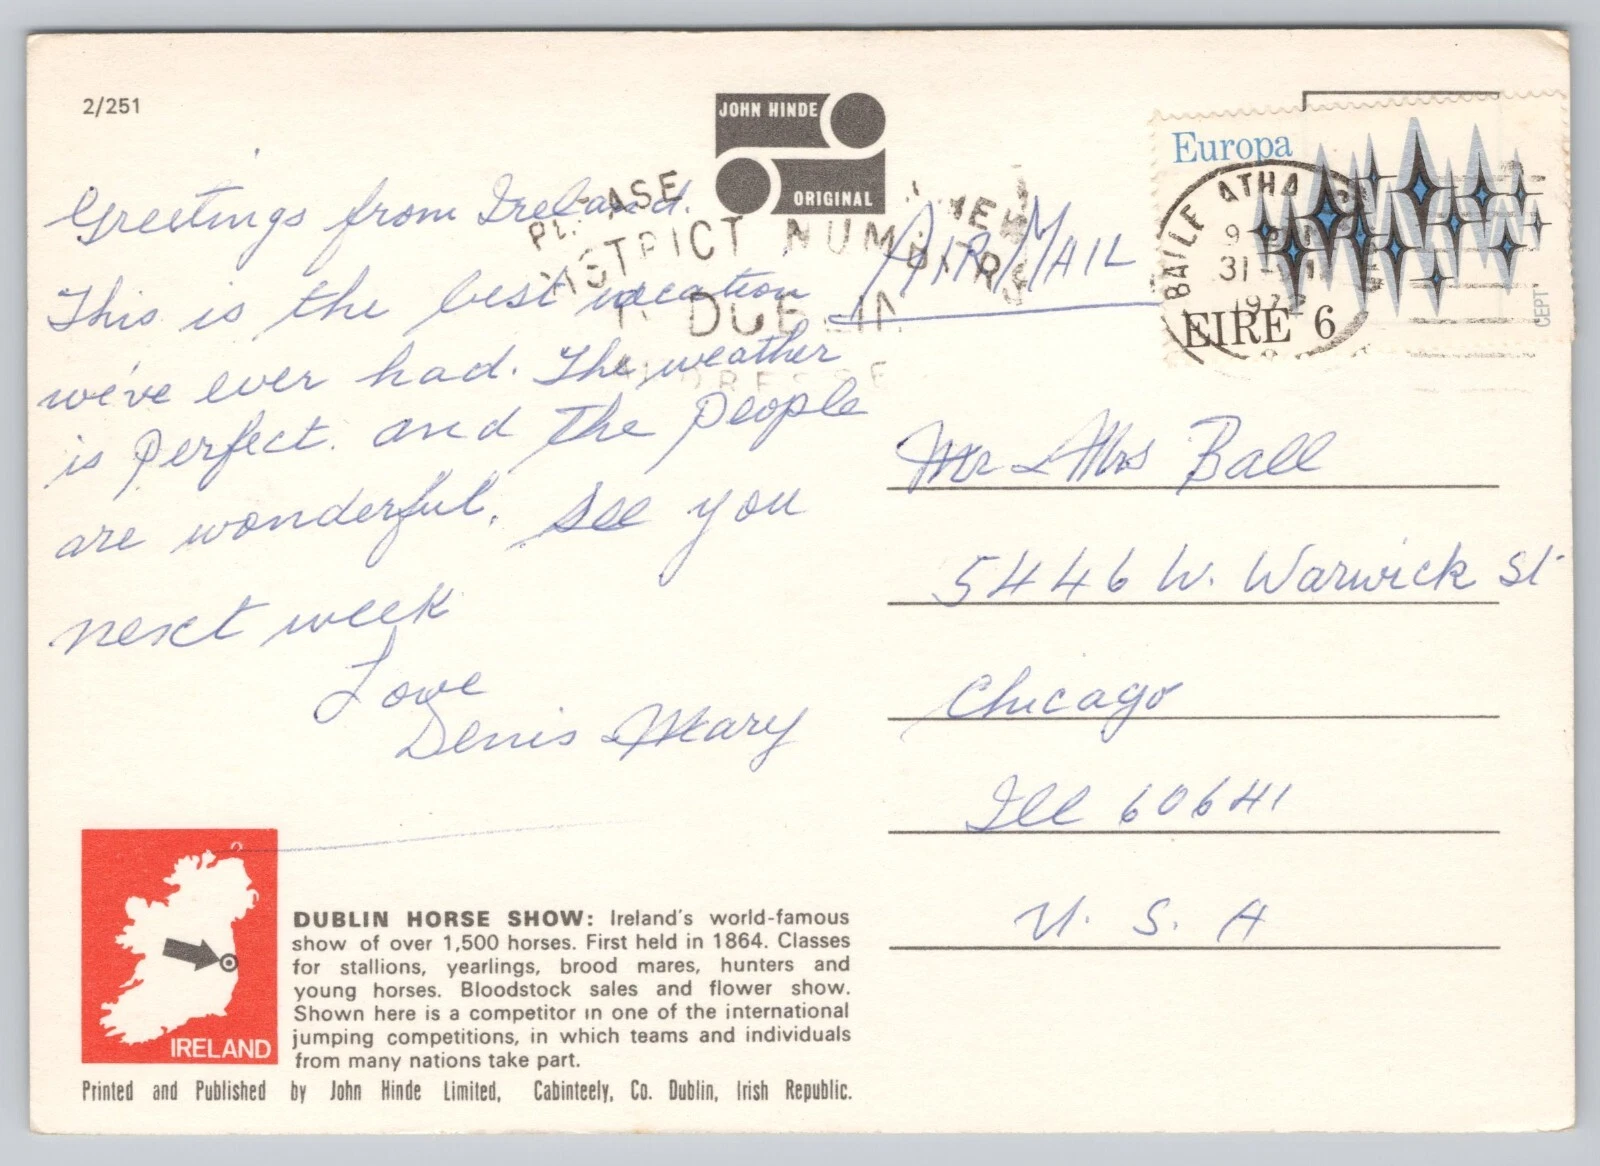 2/251
JOHN HINDE
ORIGINAL
PLEASE
DISTRICT NUMBERS
IN DUBLIN
Europa
BAILE ATHA
9
31
1972
EIRE 6
CEPT
AIR MAIL
Greetings from Ireland.
This is the best vacation
we've ever had. The weather
is perfect. and the people
are wonderful. See you
next week
Love
Denis & Mary
Mr & Mrs Ball
5446 W. Warwick St
Chicago
Ill 60641
U. S. A
IRELAND
DUBLIN HORSE SHOW: Ireland's world-famous
show of over 1,500 horses. First held in 1864. Classes
for stallions, yearlings, brood mares, hunters and
young horses. Bloodstock sales and flower show.
Shown here is a competitor in one of the international
jumping competitions, in which teams and individuals
from many nations take part.
Printed and Published by John Hinde Limited, Cabinteely, Co. Dublin, Irish Republic.